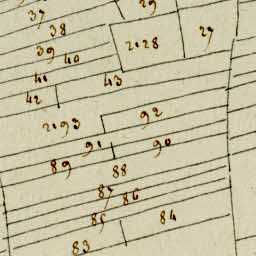 37
29
38
2028
27
39
40
41
43
42
2093
92
91
90
89
88
87
86
85
84
83